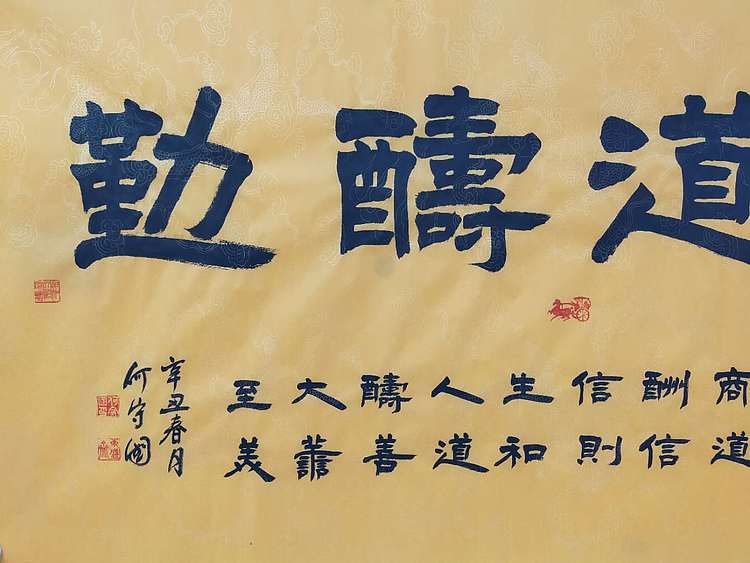 道醻勤
商道
酬信
信則
生和
人道
醻善
大譱
至美
辛丑春月
何守國